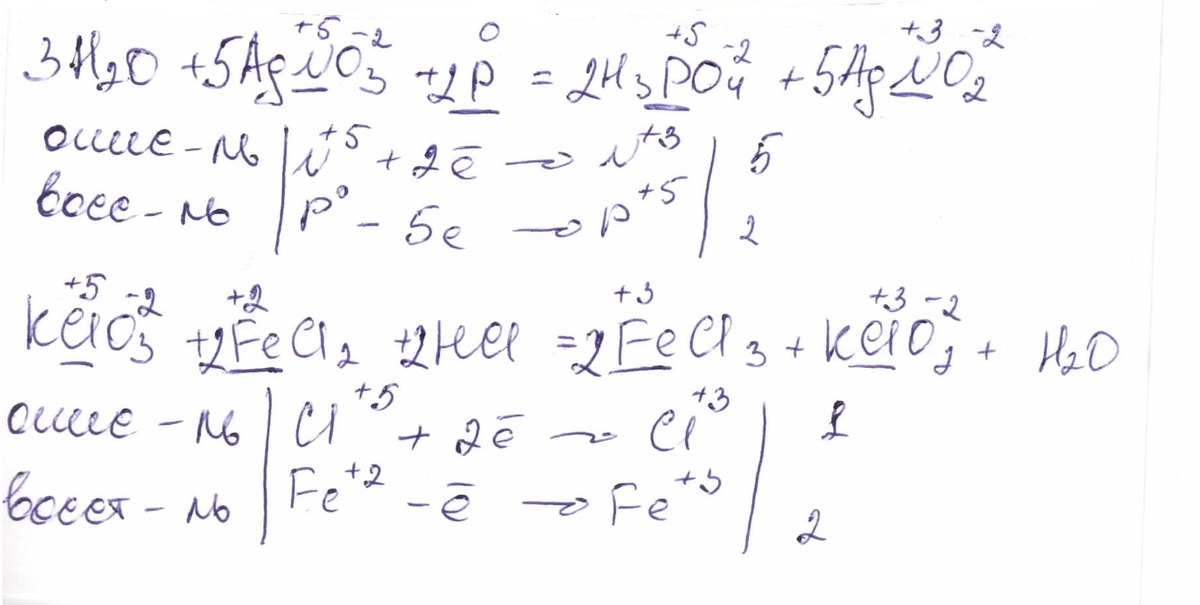 3H₂O + 5AgN⁺⁵O₃⁻² + 2P⁰ = 2H₃P⁺⁵O₄⁻² + 5AgN⁺³O₂⁻²
окис-ль | N⁺⁵ + 2ē → N⁺³ | 5
восс-ль | P⁰ - 5e → P⁺⁵ | 2
KCl⁺⁵O₃⁻² + 2Fe⁺²Cl₂ + 2HCl = 2Fe⁺³Cl₃ + KCl⁺³O₂⁻² + H₂O
окис-ль | Cl⁺⁵ + 2ē → Cl⁺³ | 1
восст-ль | Fe⁺² - ē → Fe⁺³ | 2